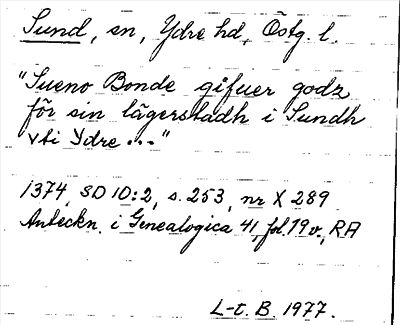 Sund, sn, Ydre hd, Östg. l.
"Sueno Bonde gifuer godz
för sin lägerstadh i Sundh
vti Ydre ..."
1374, SD 10:2, s. 253, nr X 289
Anteckn. i Genealogica 41, fol. 79 v., RA
L-t. B. 1977.